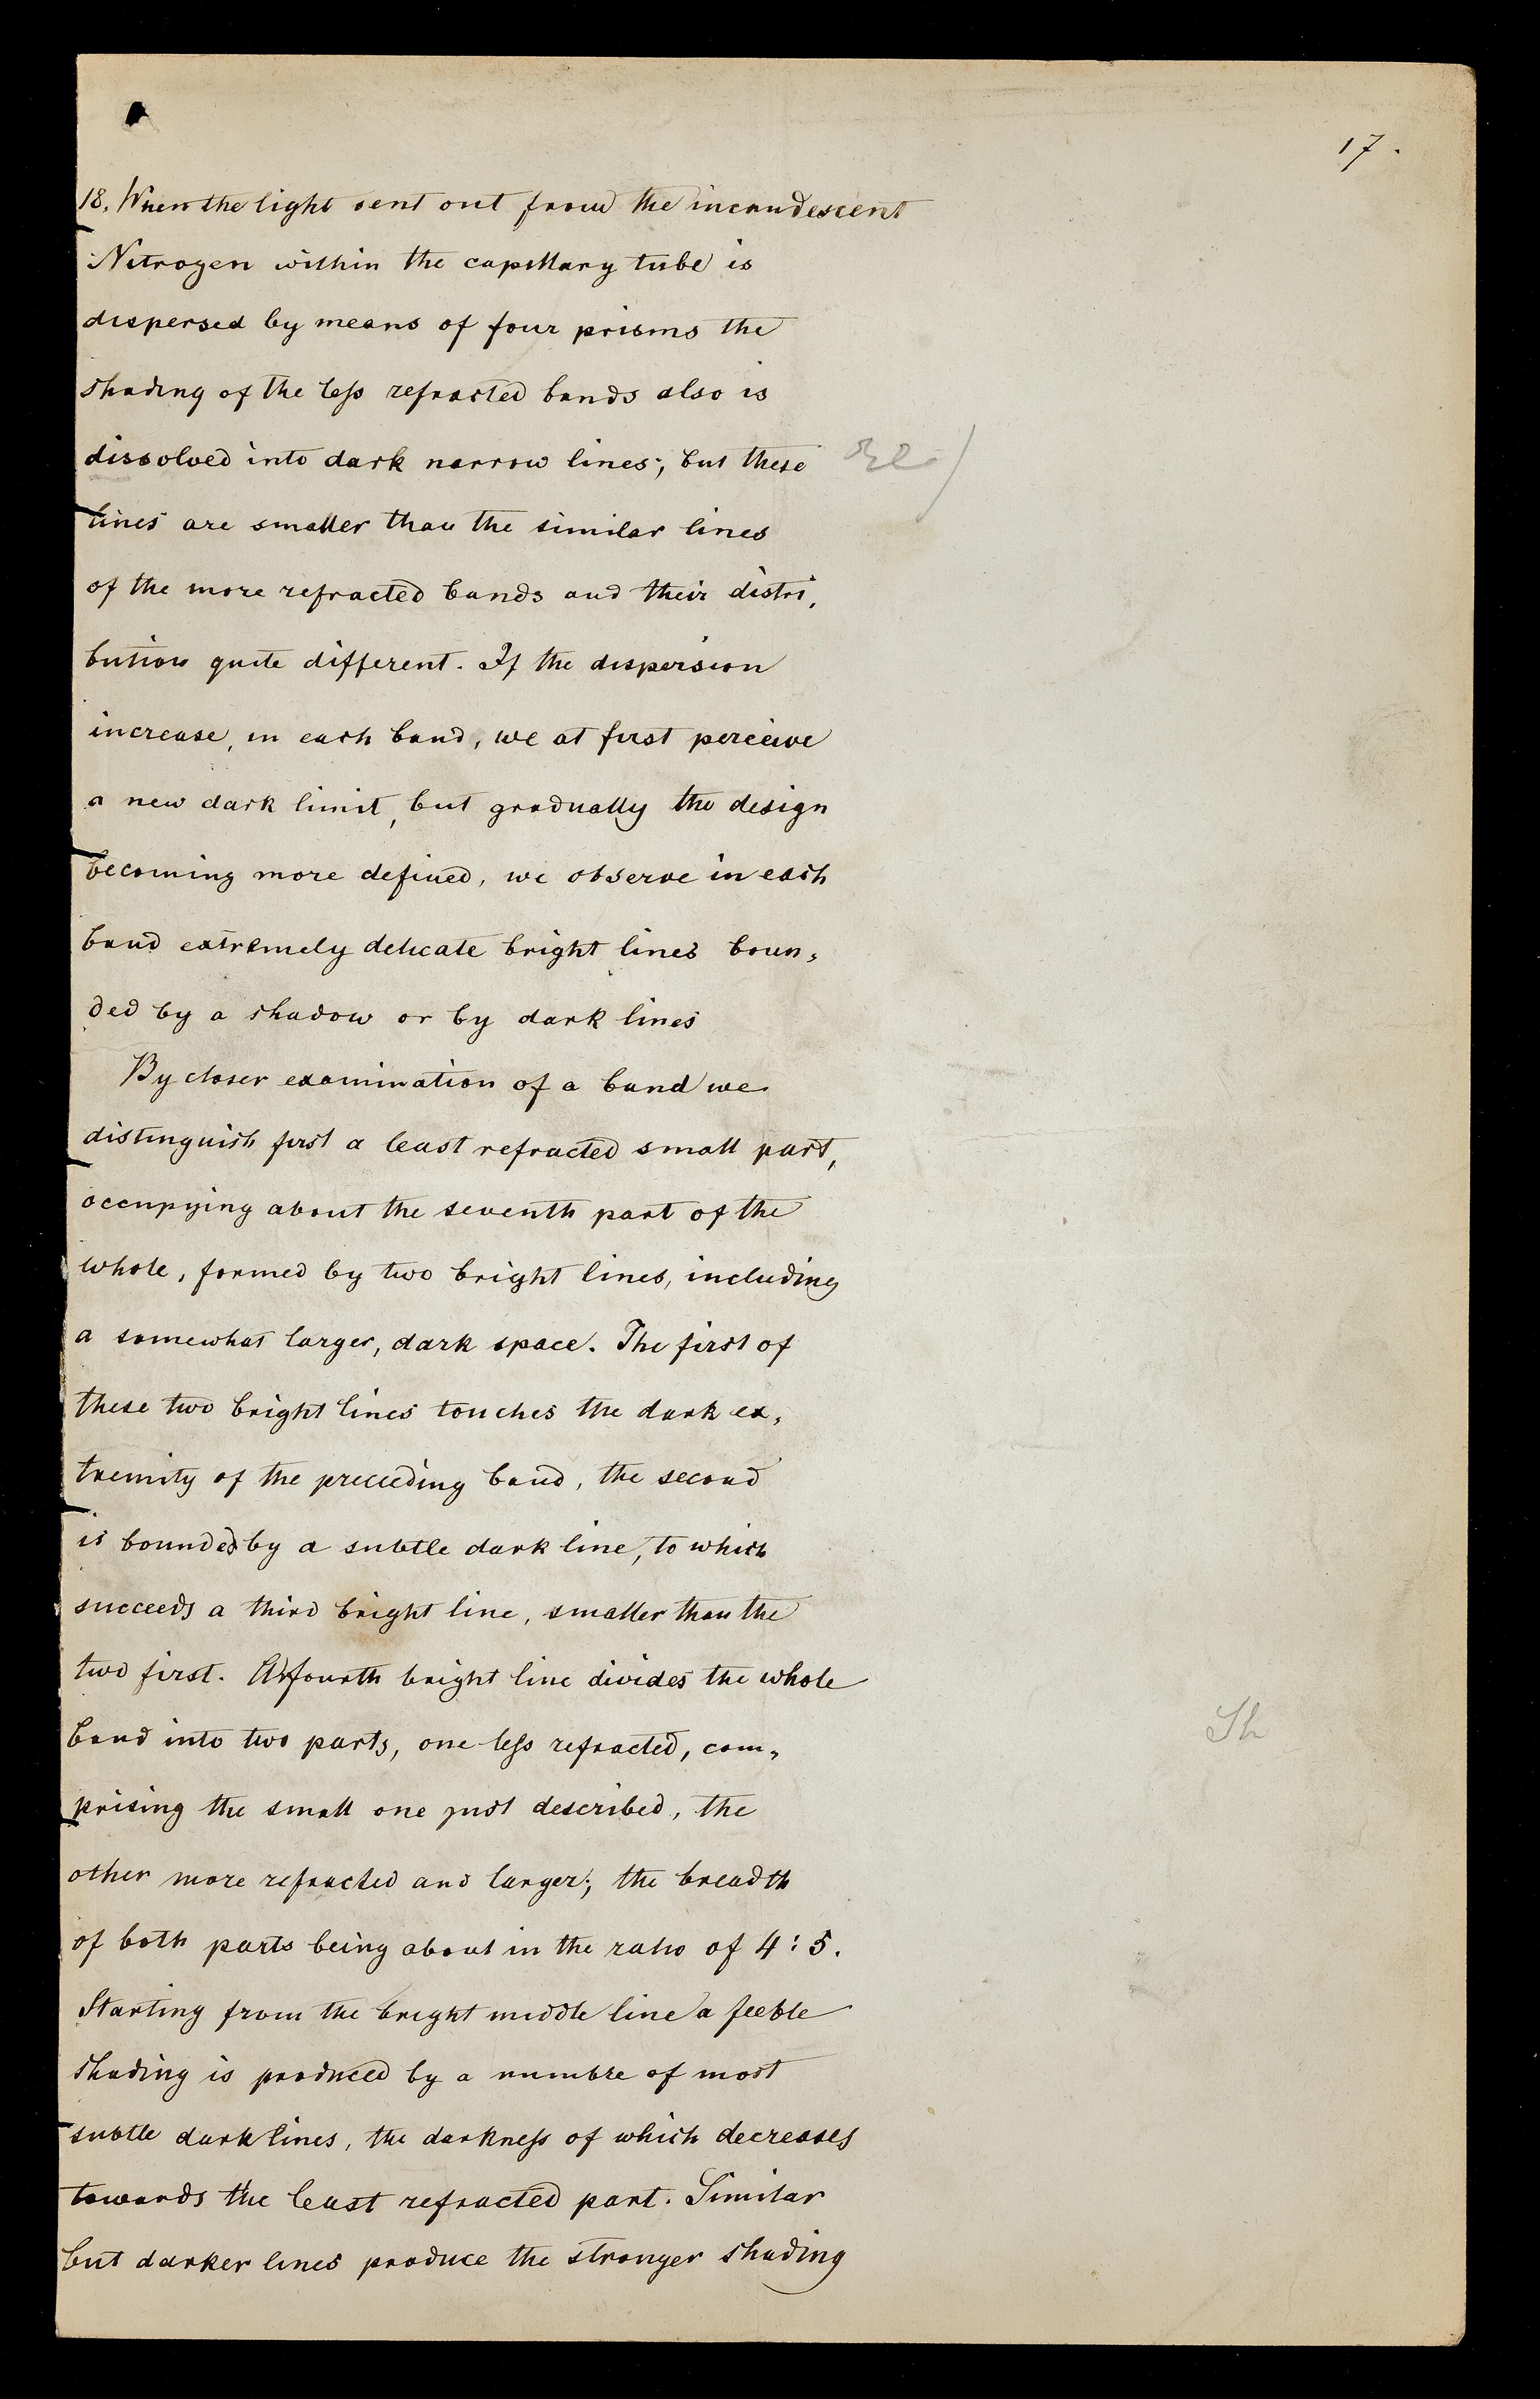 17.
18. When the light sent out from the incandescent
Nitrogen within the capillary tube is
dispersed by means of four prisms the
shading of the less refracted bands also is
dissolved into dark narrow lines; but these
lines are smaller than the similar lines
of the more refracted bands and their distri,
bution quite different. If the dispersion
increase, in each band, we at first perceive
a new dark limit, but gradually the design
becoming more defined, we observe in each
band extremely delicate bright lines boun,
ded by a shadow or by dark lines
By closer examination of a band we
distinguish first a least refracted small part,
occupying about the seventh part of the
whole, formed by two bright lines, including
a somewhat larger, dark space. The first of
these two bright lines touches the dark ex,
tremity of the preceeding band, the second
is bounded by a subtle dark line, to which
succeeds a third bright line, smaller than the
two first. A fourth bright line divides the whole
band into two parts, one less refracted, com,
prising the small one just described, the
other more refracted and larger; the breadth
of both parts being about in the ratio of 4:5.
Starting from the bright middle line a feeble
shading is produced by a numbre of most
subtle dark lines, the darkness of which decreases
towards the least refracted part. Similar
but darker lines produce the stronger shading